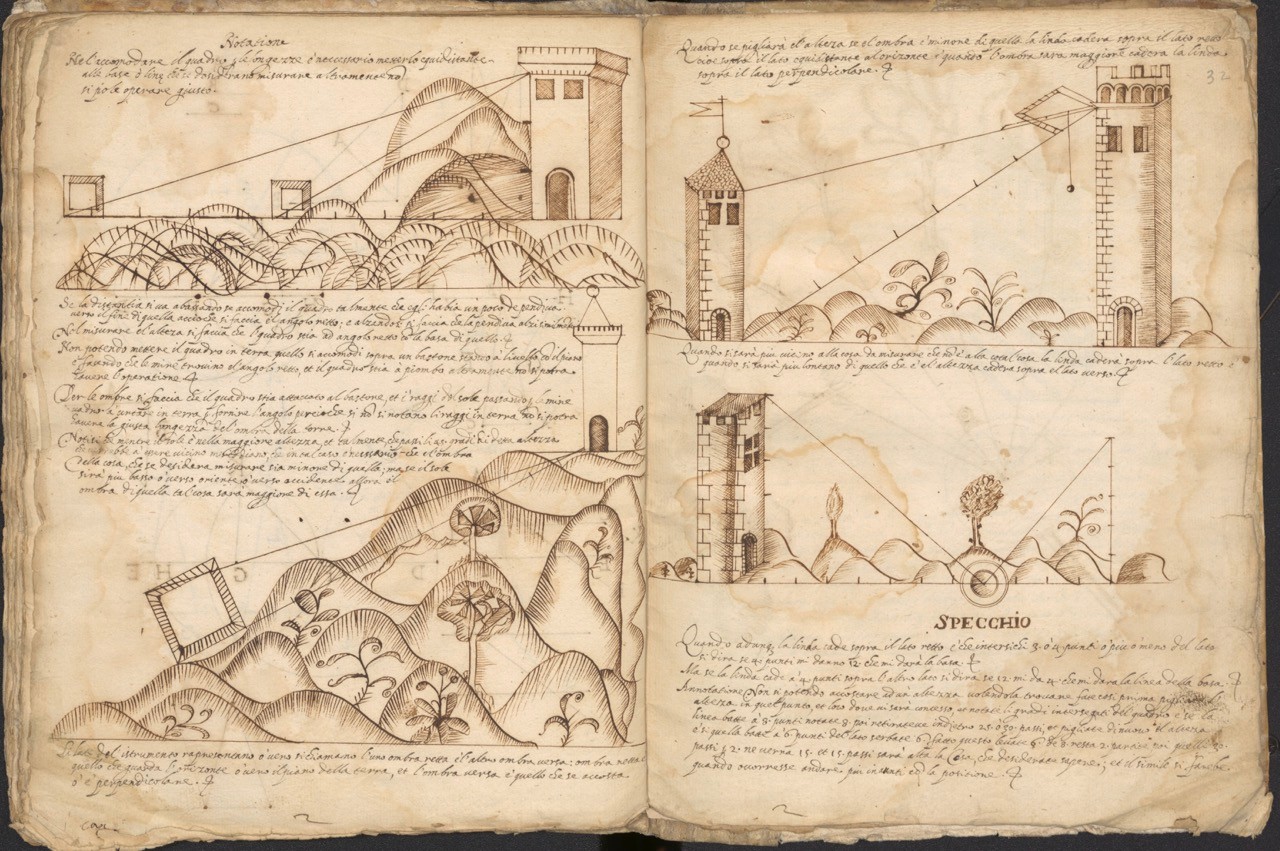 Notatione
Nel accomodare il quadro le longezze è necessario meterlo equidistante
alla base ò linea che si desiderano misurare altramente no
si potè operare giusto.
Se la distantia si va abassando se accomodi il quadro talmente che egli habia un poco de pendiva
verso il fine di quella acciochè si faccia el angolo retto; e alzandosi si faccia che la pendiva
Nel misurare el alteza si faccia che l'quadro stia ad angolo retto cò la basa di quello.
Non potendo metere il quadro in terra quello si accomodi sopra un bastone à livello cò il piano
facendo che le mire trovino el angolo retto, et il quadro stia à piombo altramente no si potra
havere l'operatione.
Per le ombre si faccia che il quadro stia attaccato al bastone, et i raggi del sole passando le mire
in terra fornire l'angolo perciochè si no si notano i raggi in terra no si potra
havere la giusta longezza del ombra della torre.
Notisi che mentre il sole è nella maggiore altezza, et talmente che passi li 45 gradi di detta altezza
vicino in tal caso è necessario che el ombra
della cosa che se desidera misurare sia minore di quella; ma se il sole
sirà più basso ò verso oriente ò verso occidente allora el
ombra di quella tal cosa sarà maggiore di essa.
I lati del istrumento rapresentano ò vero si chiamano l'uno ombra retta el altro ombra versa: ombra retta è
quello che guarda l'orizonte ò vero il piano della terra, et l'ombra versa è quello che se accosta
ò è perpendicolare.
Quando se pigliarà el alteza se el ombra è minore di quella la linda caderà sopra il lato retto
cioè sotto il lato equidistante al orizonte: quando l'ombra sarà maggiore caderà la linda
sopra il lato perpendicolare.
32
Quando si sarà più vicino alla cosa da misurare che no è alta cotal cosa la linda caderà sopra l'lato retto e
quando si sarà più lontano di quello che è el alteza caderà sopra el lato verso.
SPECCHIO
Quando adunq la linda cade sopra il lato retto è che intersichi 3 ò 4 punti ò più ò meno del lato
si dira se 4 punti mi danno 12 che mi darà la basa.
Ma se la linda cade à 4 punti sopra l'altro lato si dira se 12 mi da 4 che mi dara la linea della basa.
Annotatione Non si potendo accostare ad un alteza volendola trovare fate così prima pigliate l
alteza in quel punto, et loco dove vi sarà concesso, et notate li gradi intersecati del quadro è se la
linea batte à 8 punti notate 8 poi retiratevi indietro 25 ò 30 passi, et pigliate di nuovo il alteza
e si quella batte à 6 punti del lato serbate 6 fatto questo levate 6 de 8 resta 2 partite poi quelli 30
passi 2 ne verrà 15 et 15 passi sarà alta la Cosa, che desiderate sapere; et il simile si farebe
quando ocorresse andare più inanti cò la positione.